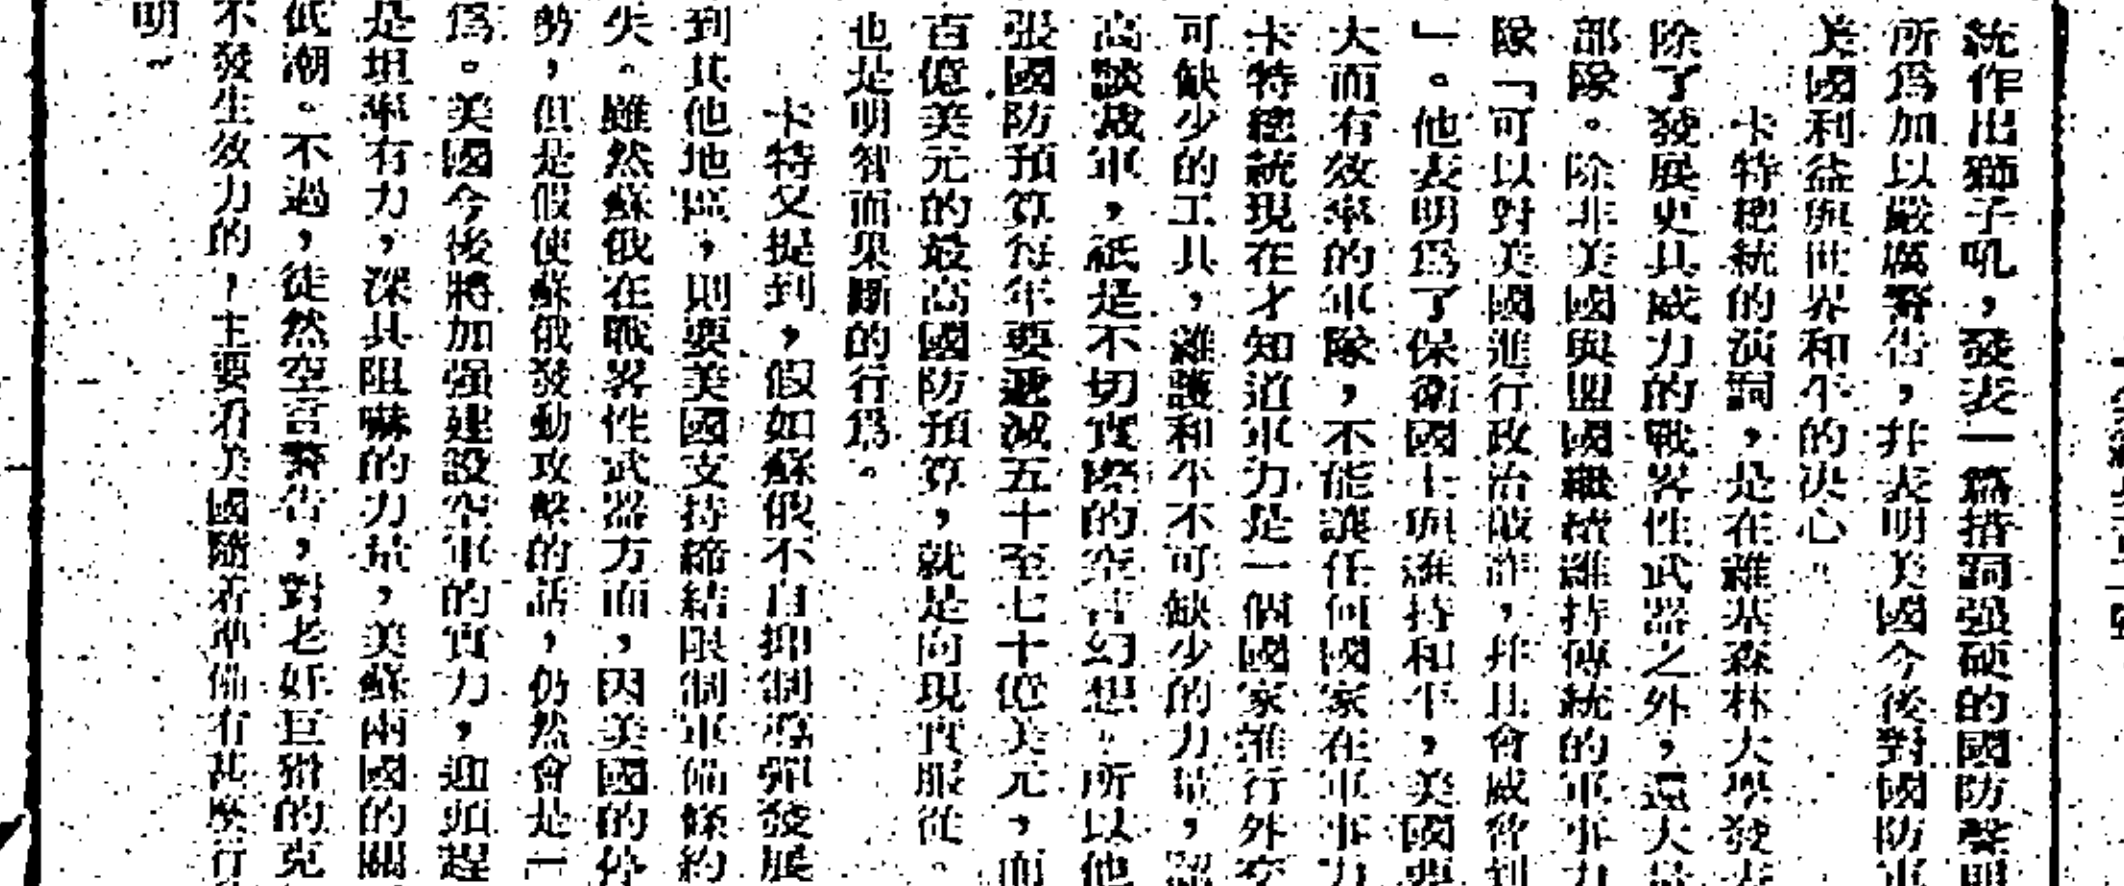 統作出獅子吼，發表一篇措詞强硬的國防聲明
所爲加以嚴厲警告，幷表明美國今後對國防軍
美國利益與世界和平的決心。
卡特總統的演詞，是在維基森林大學發表
除了發展更具威力的戰畧性武器之外，還大量
部隊。除非美國與盟國繼續維持傳統的軍事力
隊「可以對美國進行政治敲詐，幷且會威脅到
」。他表明爲了保衛國土與維持和平，美國要
大而有效率的軍隊，不能讓任何國家在軍事力
卡特總統現在才知道軍力是一個國家推行外交
可缺少的工具，維護和平不可缺少的力量，
高談裁軍，祇是不切實際的空言幻想。所以他
張國防預算每年要遞減五十至七十億美元，而
百億美元的最高國防預算，就是向現實服從。
也是明智而果斷的行爲。
卡特又提到，假如蘇俄不自抑制導彈發展
到其他地區，則要美國支持締結限制軍備條約
失。雖然蘇俄在戰畧性武器方面，因美國的停
勢，但是假使蘇俄發動攻擊的話，仍然會是一
爲。美國今後將加强建設空軍的實力，迎頭趕
是坦率有力，深具阻嚇的力量，美蘇兩國的關
低潮。不過，徒然空言警告，對老奸巨猾的克
不發生效力的，主要看美國隨着準備有甚麽行
明。